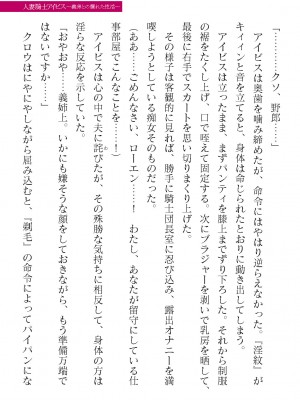 人妻騎士アイビス
「……クソ、野郎……！」
アイビスは奥歯を噛み締めたが、命令にはやはり逆らえなかった。『淫紋』が
キィィンと音を立てると、身体は命じられたとおりに動き出してしまう。
アイビスは立ったまま、まずパンティを膝上までずり下ろした。それから制服
の裾をたくし上げ、口で咥えて固定する。次にブラジャーを剥いで乳房を晒して、
最後に右手でスカートを思い切りまくり上げた。
その様子は客観的に見れば、勝手に騎士団長室に忍び込み、露出オナニーを満
喫しようとしている痴女そのものだった。
（ああ……ごめんなさい、ローエン……！　わたし、あなたが留守にしている仕
事部屋でこんなことを……！）
アイビスは心の中で夫に詫びたが、その殊勝な気持ちに相反して、身体の方は
淫らな反応を示していた。
「おやおや……義姉上。いかにも嫌そうな顔をしておきながら、もう準備万端で
はないですか……」
クロウはにやにやしながら屈み込むと、『剃毛』の命令によってパイパンにな